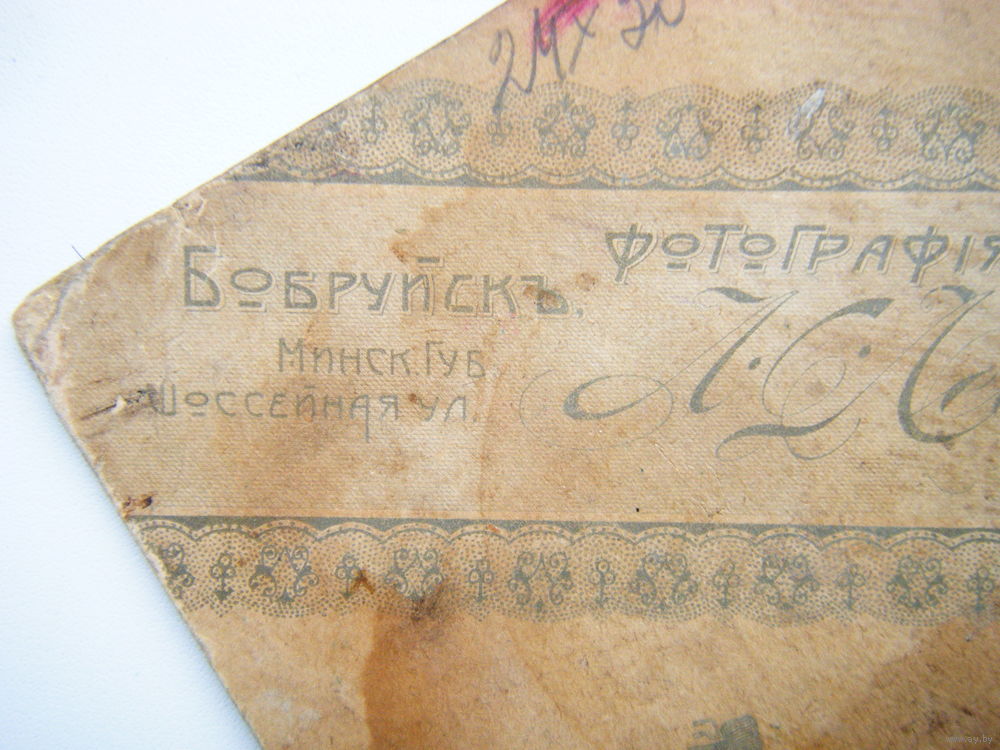 24 х 30
Бобруйскъ,
Минск. Губ.
Шоссейная ул.
Фотографія
www.ay.by